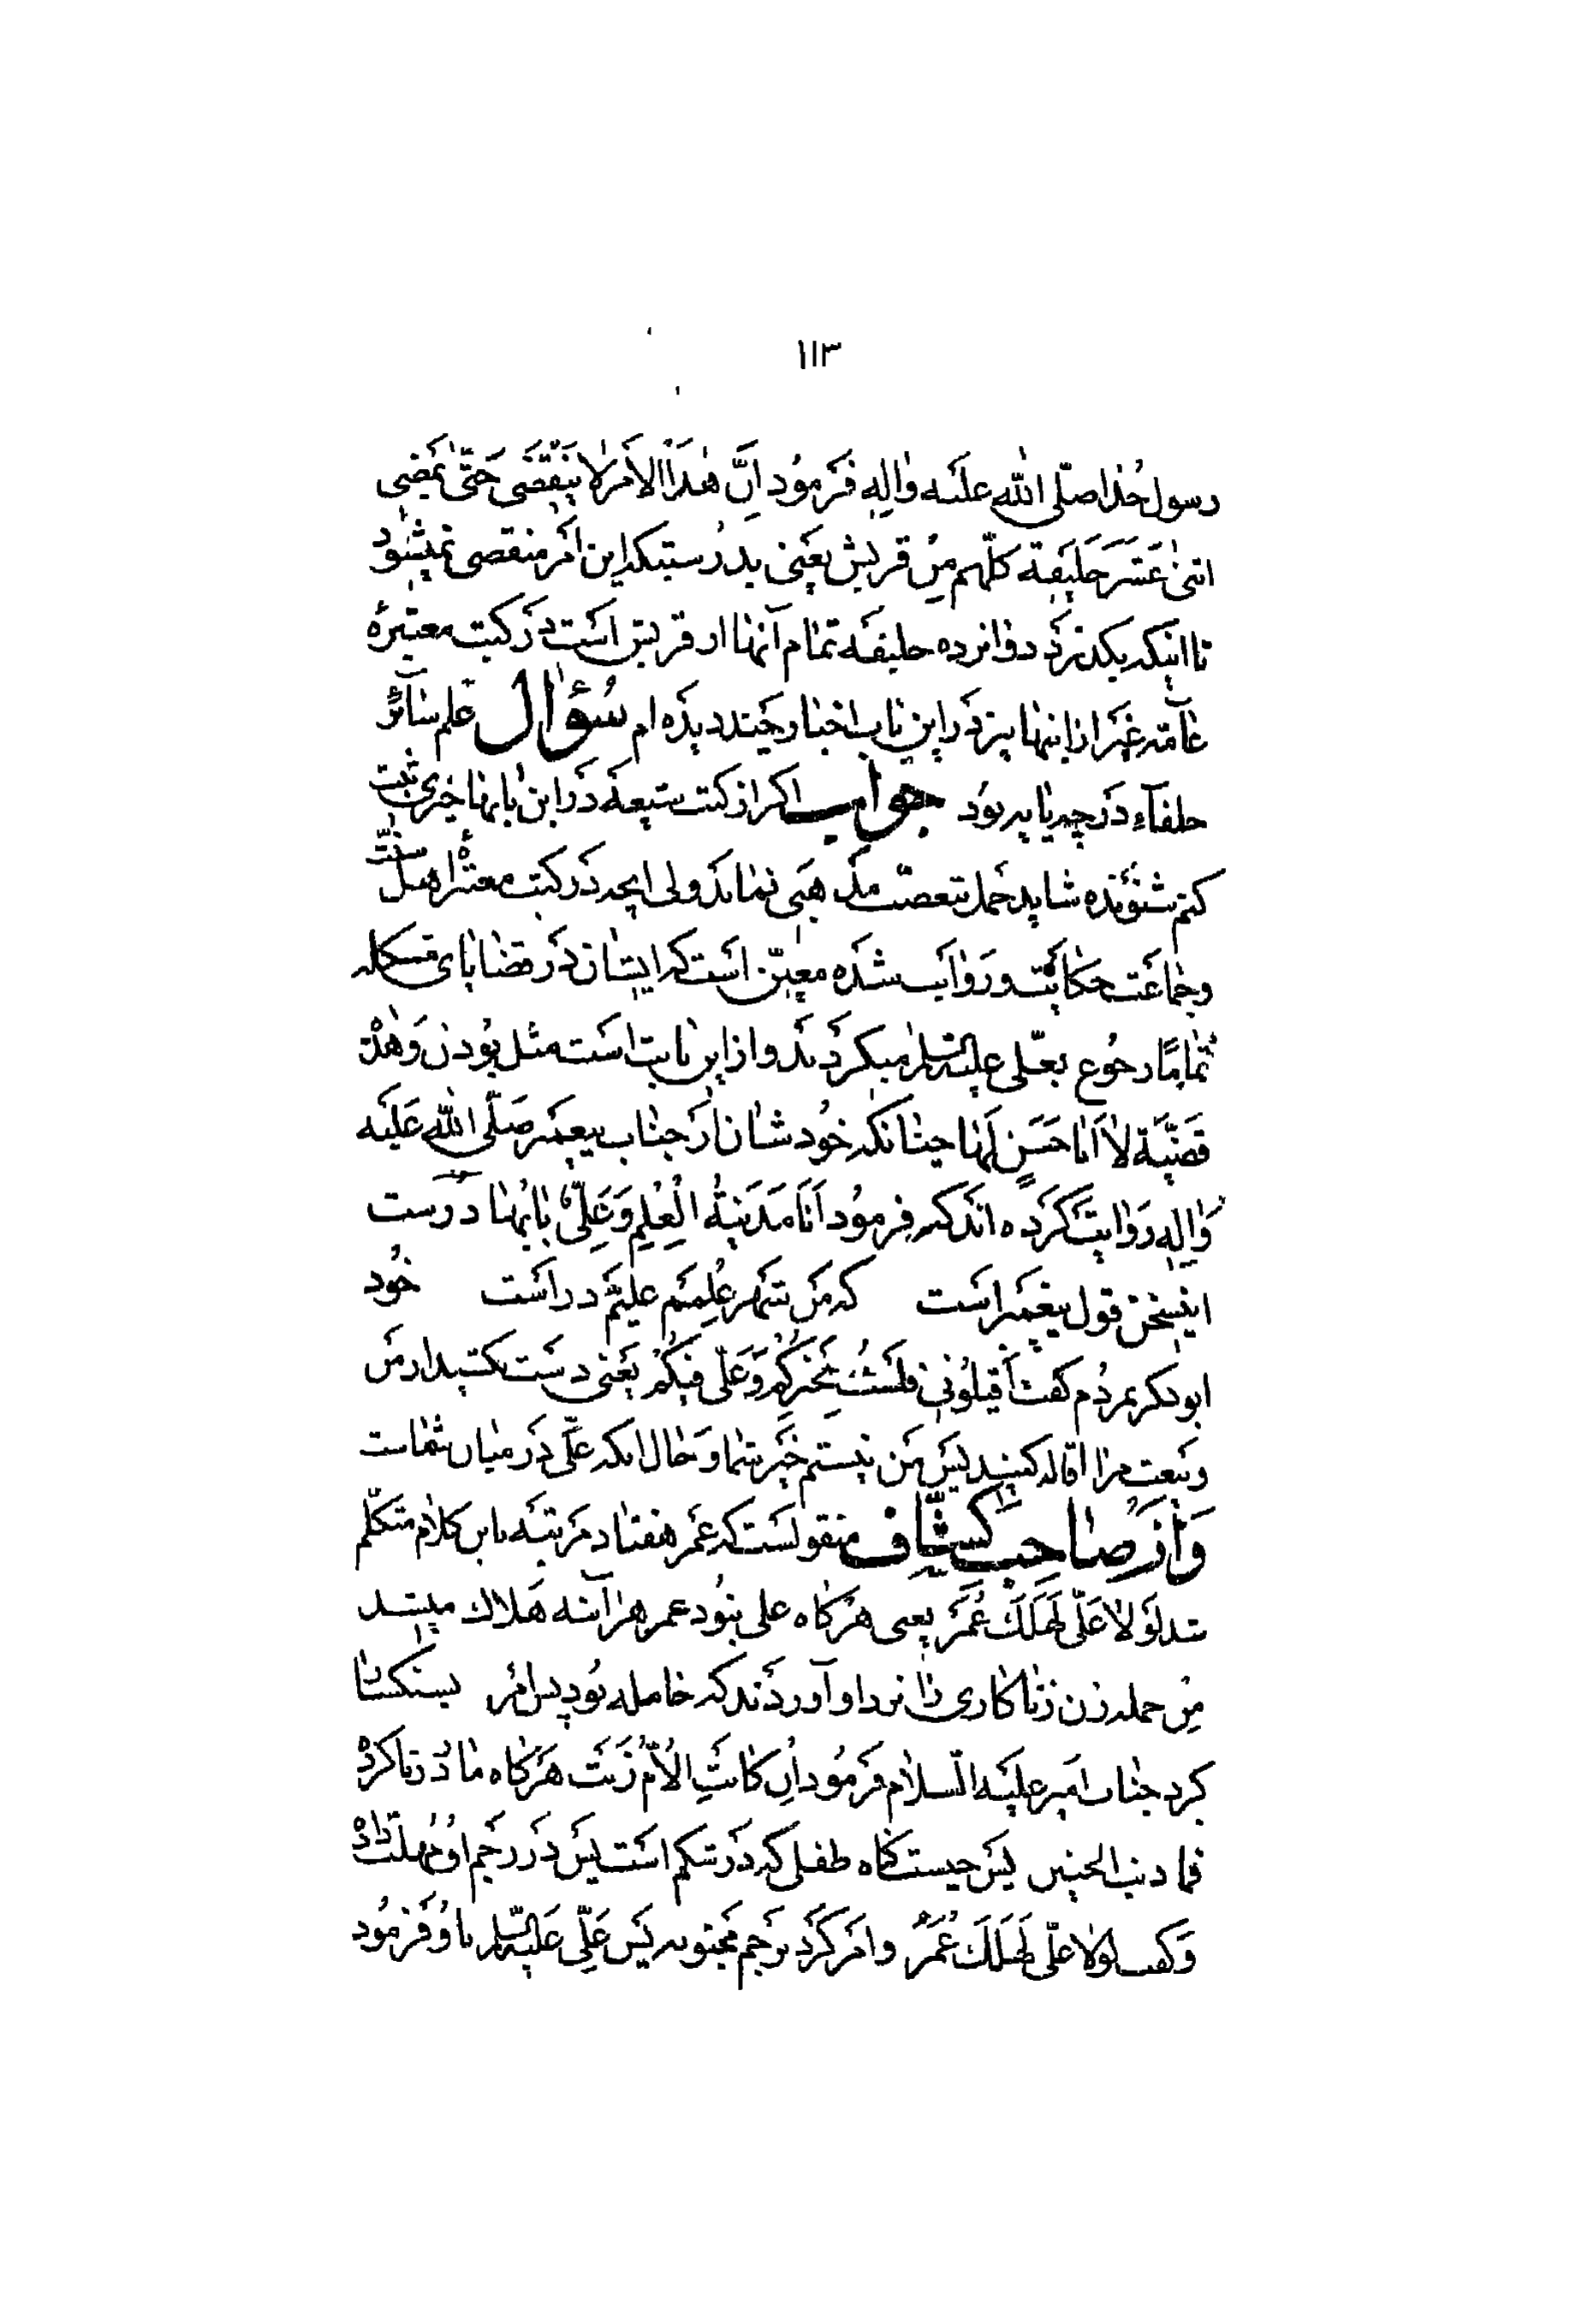 ۱۱۳
رسول خدا صلّی الله علیه واله فرمود اِنَّ هٰذَا الاَمرَ لا یَنقَضی حَتّیٰ یَمضِی
اثنیٰ عَشَرَ خَلیفة کلّهم مِن قریش یعنی بدرستیکه این امر منقضی نمیشود
تا اینکه بگذرد دوانزده خلیفه تمام آنها از قریش است در کتب معتبرهٔ
عآمّه غیر از اینها نیز در این باب اخبار چند دیده ام سُؤال علم سآئر
خلفآء در چه پایه بود جواب اکر از کتب شیعه در این بابها خبری ثبت
کنم شنونده شاید حمل بتعصّب مذهبی نماید ولی آنچه در کتب معتبرهٔ اهل سنّت
وجماعت حکایت و روایت شده معیّن است که ایشان در قضایای مشکله
تماماً رجوع بعلی علیه السلم میکردند و از این بابت است مثل بودن وَهٰذه
قَضیّة لا اَبا حَسَنٍ لَها چنانکه خودشان از جناب پیغمبر صَلّی الله عَلَیه
وَاله روایت کرده اند که فرمود اَنَا مَدَینَةُ الْعِلمِ وَعَلِیٌّ بابُها درست
اینسخن قول پیغمبر است که من شهر علمم علیّم در است خود
ابوبکر بمردم کفت اَقیلوُنی فلَستُ بِخَیرِکُم وَعَلّی فیکُم یعنی دست بکشید از من
و بیعت مرا اقاله کنید پس من نیستم خیر شما و حال انکه علّی در میان شماست
وَاز صاحب کشّاف منقولست که عمر هفتاد مرتبه باین کلام متکلّم
شد لَولا عَلّی لَهَلَکَ عُمَر یعنی هرکاه علی نبود عمر هرآینه هلاک میشد
مِن جمله زن زناکاری را نزد او آوردند که حامله بود پس امر بسنکسار
کرد جناب امیر علیه السلام فرمود اِن کانَتِ الاُمّ زَنَت هرکاه مادر زنا کرده
فما ذنب الجنین پس چیست کناه طفلی که در شکم است پس در رجم او مُهلت داد
وَ کفت لولا علّی لَهَلَکَ عُمَر و امر کرد برجم مجنونه پس عَلّی عَلیه السلم باو فرمود